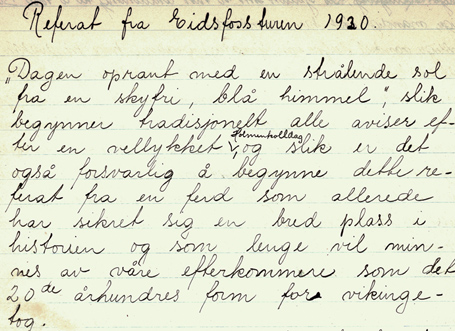 Referat fra Eidsfossturen 1930.
„Dagen oprant med en strålende sol
fra en skyfri, blå himmel", slik
begynner tradisjonelt alle aviser ef-
ter en vellykket og slik er det
også forsvarlig å begynne dette re-
ferat fra en ferd som allerede
har sikret sig en bred plass i
historien og som lenge vil min-
nes av våre efterkommere som det
20de århundres form for vikinge-
tog.